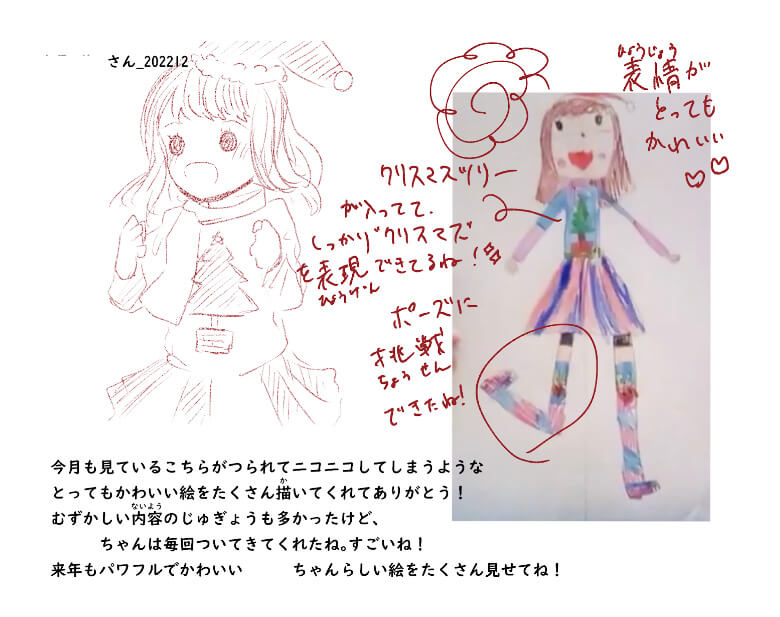 さん_202212
ひょうじょう
表情が
とっても
かわいい
クリスマスツリー
が入ってて、
しっかり“クリスマス”
を表現できてるね！
ひょうげん
ポーズに
挑戦
ちょうせん
できたね！
今月も見ているこちらがつられてニコニコしてしまうような
か
とってもかわいい絵をたくさん描いてくれてありがとう！
ないよう
むずかしい内容のじゅぎょうも多かったけど、
ちゃんは毎回ついてきてくれたね。すごいね！
来年もパワフルでかわいい ちゃんらしい絵をたくさん見せてね！